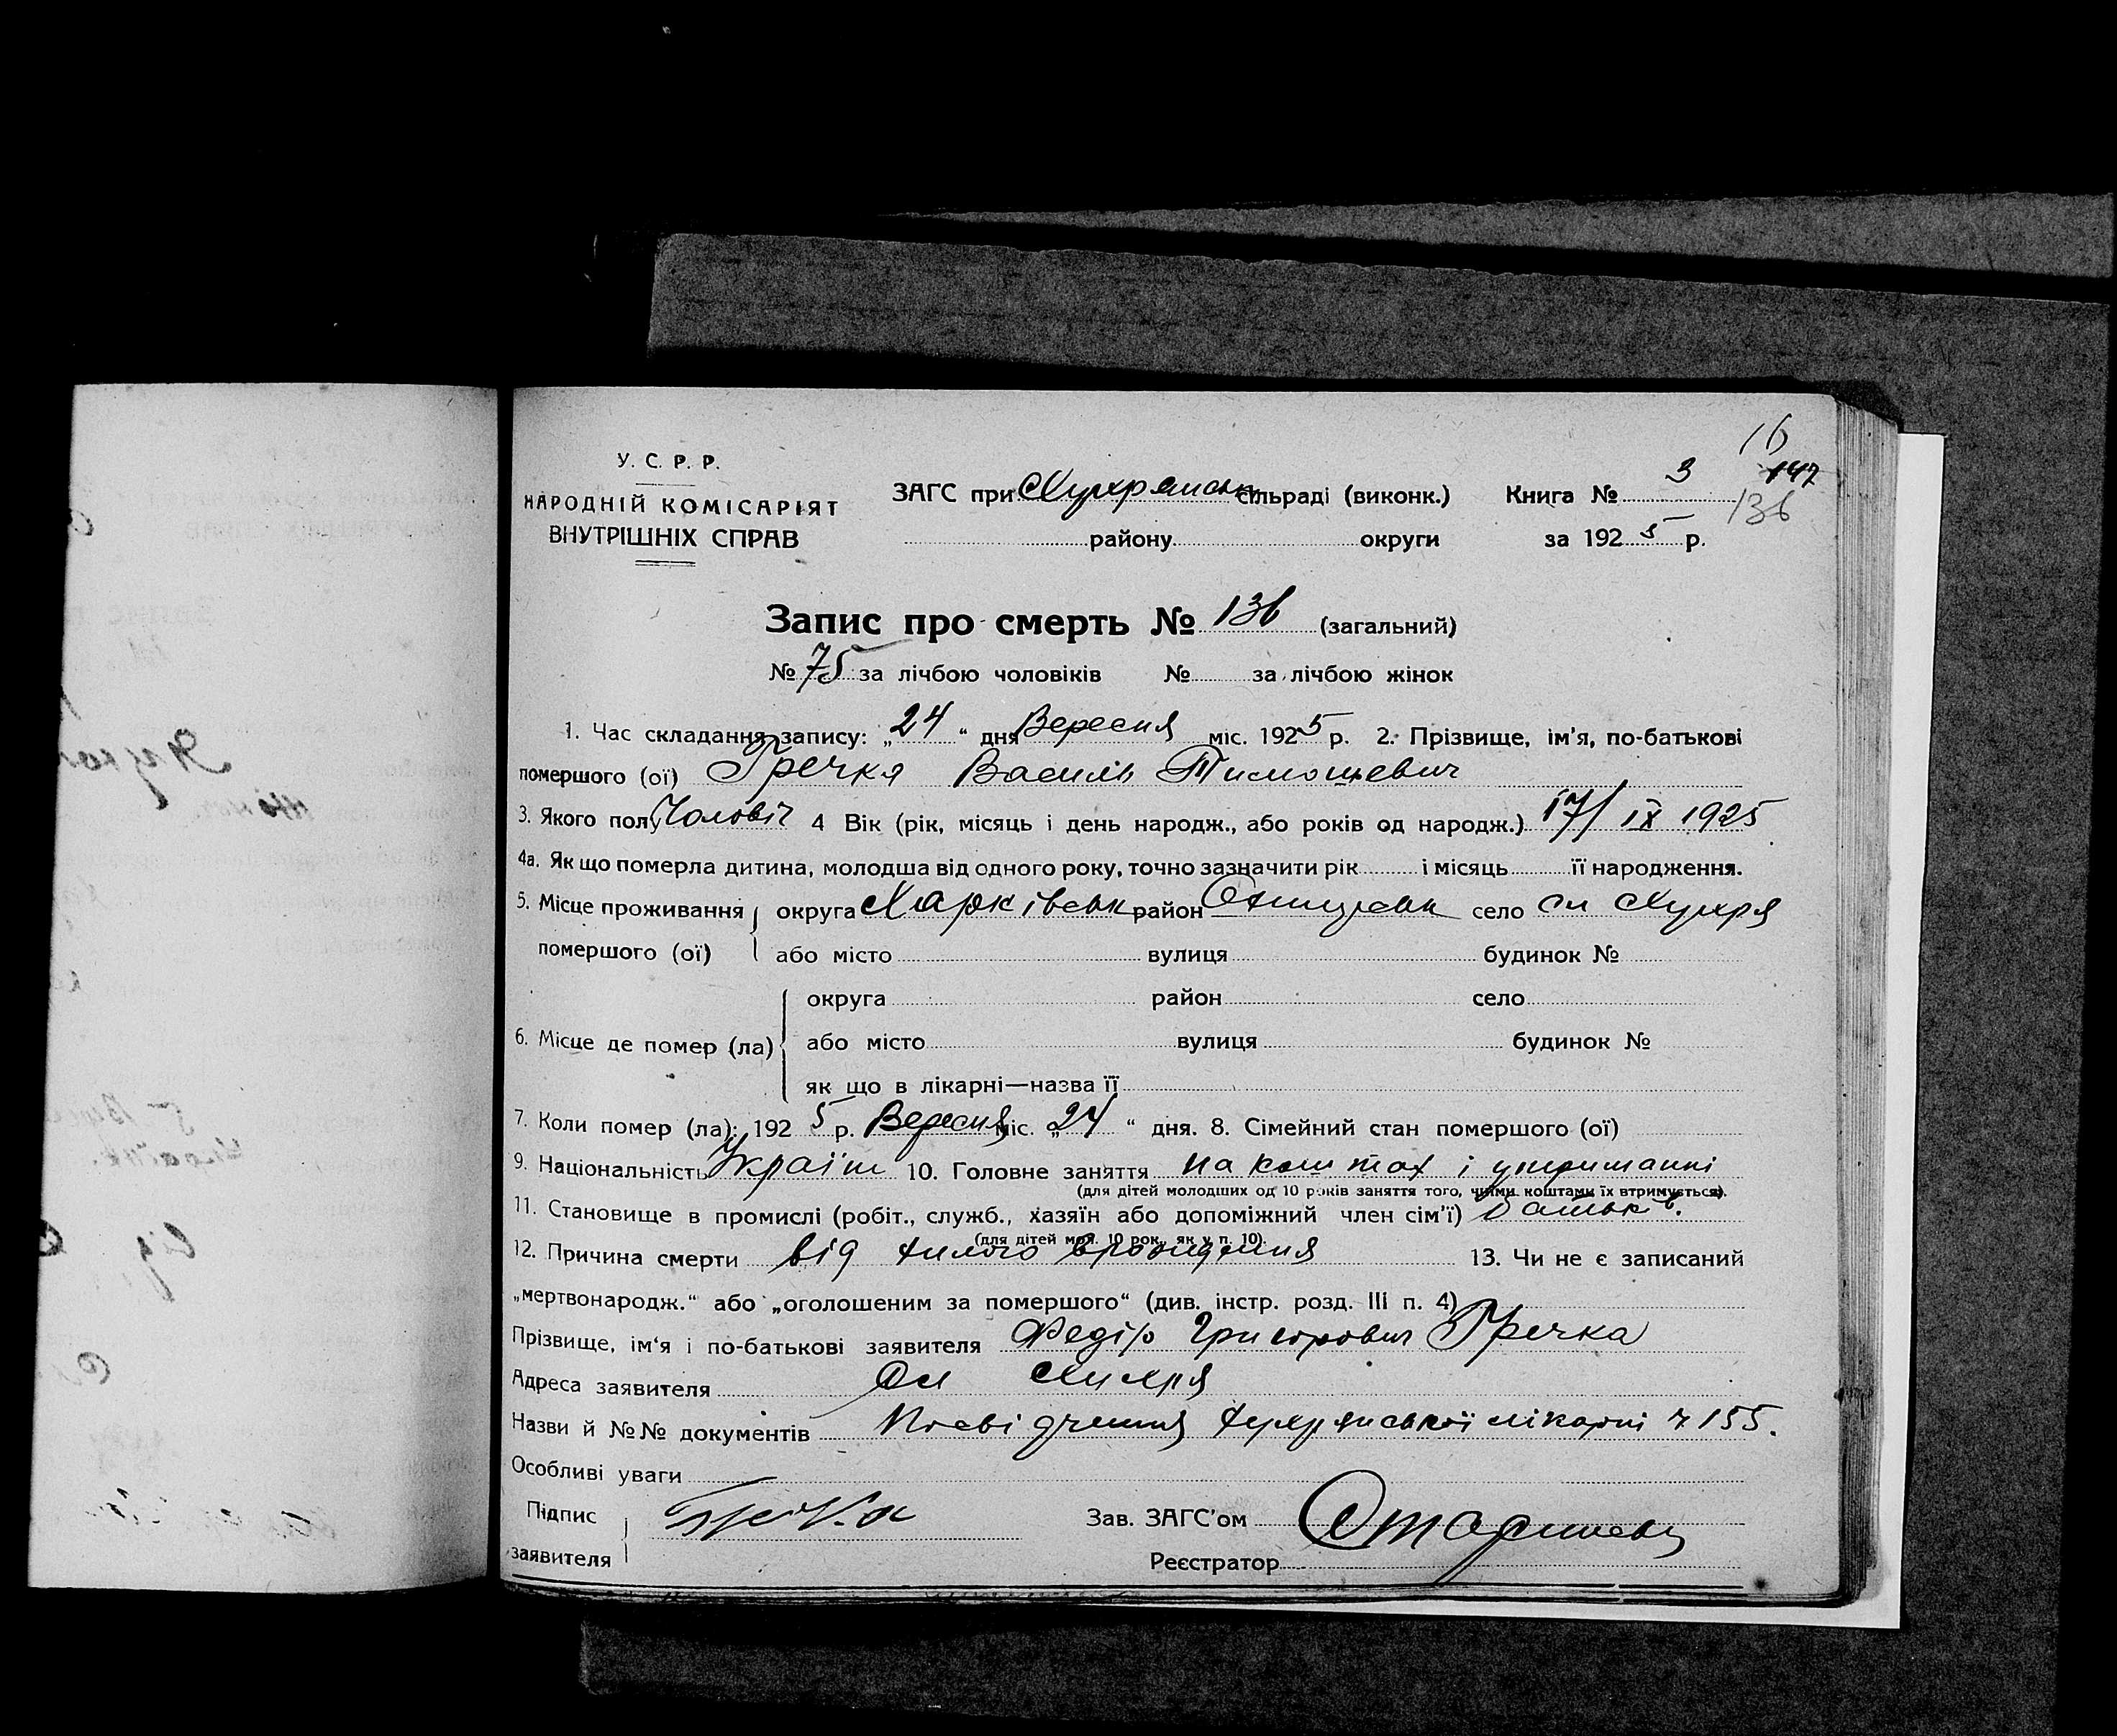 У. С. Р. Р.
НАРОДНІЙ КОМІСАРІЯТ
ВНУТРІШНІХ СПРАВ
ЗАГС при сільраді (виконк.) Книга № 3
району округи за 1925 р.
16
147
136
Запис про смерть № 136 (загальний)
№ 75 за лічбою чоловіків № за лічбою жінок
1. Час складання запису: „24“ дня Вересня міс. 1925 р. 2. Прізвище, ім'я, по-батькові
помершого (ої) Гречка Василь Тимошевич
3. Якого полу Чоловіч 4 Вік (рік, місяць і день народж., або років од народж.) 17/IX 1925
4а. Як що померла дитина, молодша від одного року, точно зазначити рік і місяць її народження.
5. Місце проживання округа Харківськ район село сл
помершого (ої) або місто вулиця будинок №
округа район село
6. Місце де помер (ла) або місто вулиця будинок №
як що в лікарні—назва її
7. Коли помер (ла): 1925 р. Вересня міс. „24“ дня. 8. Сімейний стан помершого (ої)
9. Національність Україн 10. Головне заняття на коштах і утриманні
(для дітей молодших од 10 років заняття того, чиїми коштами їх втримується).
11. Становище в промислі (робіт., служб., хазяїн або допоміжний член сім'ї) батьків.
(для дітей мол. 10 рок., як у п. 10).
12. Причина смерти від 13. Чи не є записаний
„мертвонародж.“ або „оголошеним за помершого“ (див. інстр. розд. III п. 4)
Прізвище, ім'я і по-батькові заявителя Федір Григорович Гречка
Адреса заявителя Сл
Назви й №№ документів лікарні ч 155.
Особливі уваги
Підпис
заявителя Гречка
Зав. ЗАГС'ом
Реєстратор